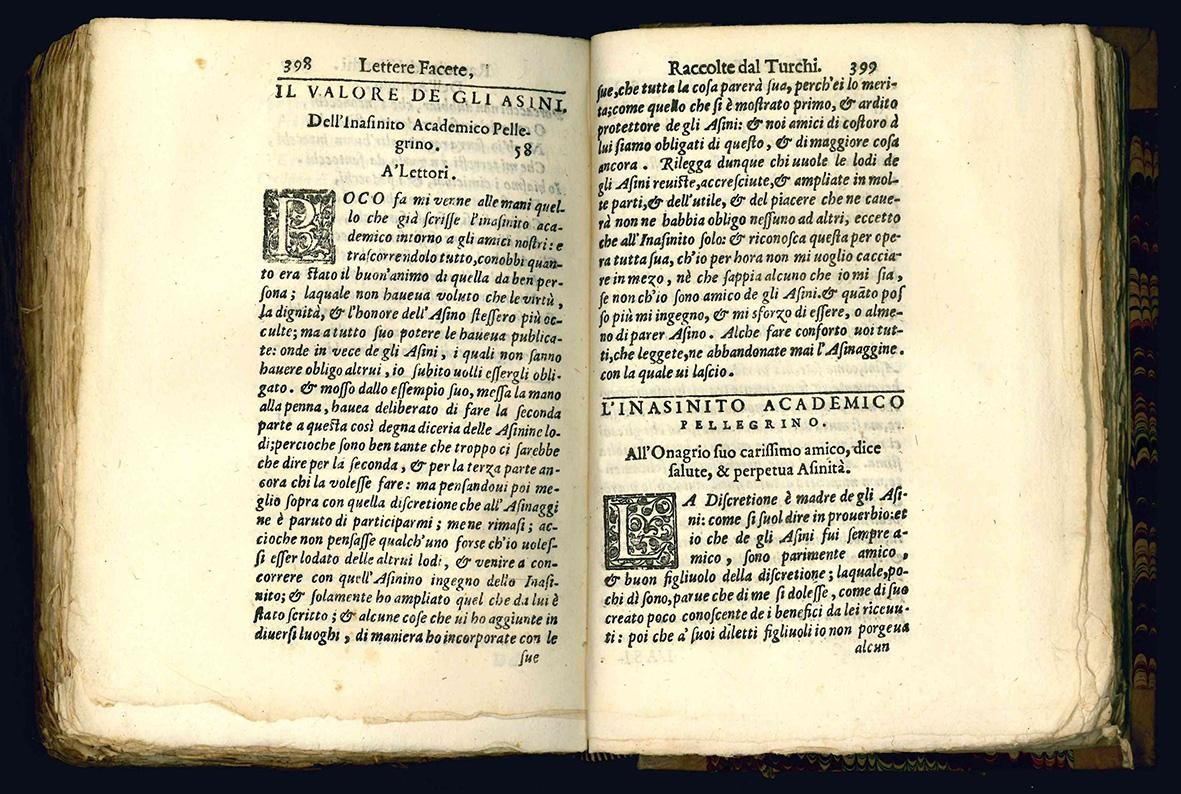 398 Lettere Facete,
IL VALORE DE GLI ASINI,
Dell'Inasinito Academico Pelle-
grino. 58
A' Lettori.
POCO fa mi venne alle mani quel-
lo che già scrisse l'inasinito aca-
demico intorno a gli amici nostri: e
trascorrendolo tutto, conobbi quan-
to era stato il buon'animo di quella da ben per-
sona; laquale non haueua voluto che le virtù,
la dignità, & l'honore dell'Asino stessero più oc-
culte; ma a tutto suo potere le haueua publica-
te: onde in vece de gli Asini, i quali non sanno
hauere obligo altrui, io subito uolli essergli obli-
gato. & mosso dallo essempio suo, messa la mano
alla penna, hauea deliberato di fare la seconda
parte a questa così degna diceria delle Asinine lo-
di; percioche sono ben tante che troppo ci sarebbe
che dire per la seconda, & per la terza parte an-
cora chi la volesse fare: ma pensandoui poi me-
glio sopra con quella discretione che all'Asinaggi
ne è paruto di participarmi; mene rimasi; ac-
cioche non pensasse qualch'uno forse ch'io uoles-
si esser lodato delle altrui lodi, & venire a con-
correre con quell'Asinino ingegno dello Inasi-
nito; & solamente ho ampliato quel che da lui è
stato scritto; & alcune cose che ui ho aggiunte in
diuersi luoghi, di maniera ho incorporate con le
sue
Raccolte dal Turchi. 399
sue, che tutta la cosa parerà sua, perch'ei lo meri-
ta; come quello che si è mostrato primo, & ardito
protettore de gli Asini: & noi amici di costoro à
lui siamo obligati di questo, & di maggiore cosa
ancora. Rilegga dunque chi uuole le lodi de
gli Asini reuiste, accresciute, & ampliate in mol-
te parti, & dell'utile, & del piacere che ne caue-
rà non ne habbia obligo nessuno ad altri, eccetto
che all'Inasinito solo: & riconosca questa per ope-
ra tutta sua, ch'io per hora non mi uoglio caccia-
re in mezo, nè che sappia alcuno che io mi sia,
se non ch'io sono amico de gli Asini. & quāto pos
so più mi ingegno, & mi sforzo di essere, o alme-
no di parer Asino. Alche fare conforto uoi tut-
ti, che leggete, ne abbandonate mai l'Asinaggine.
con la quale ui lascio.
L'INASINITO ACADEMICO
PELLEGRINO.
All'Onagrio suo carissimo amico, dice
salute, & perpetua Asinità.
LA Discretione è madre de gli Asi-
ni: come si suol dire in prouerbio: et
io che de gli Asini fui sempre a-
mico, sono parimente amico,
& buon figliuolo della discretione; laquale, po-
chi dì sono, parue che di me si dolesse, come di suo
creato poco conoscente de i benefici da lei riceuu-
ti: poi che a' suoi diletti figliuoli io non porgeua
alcun